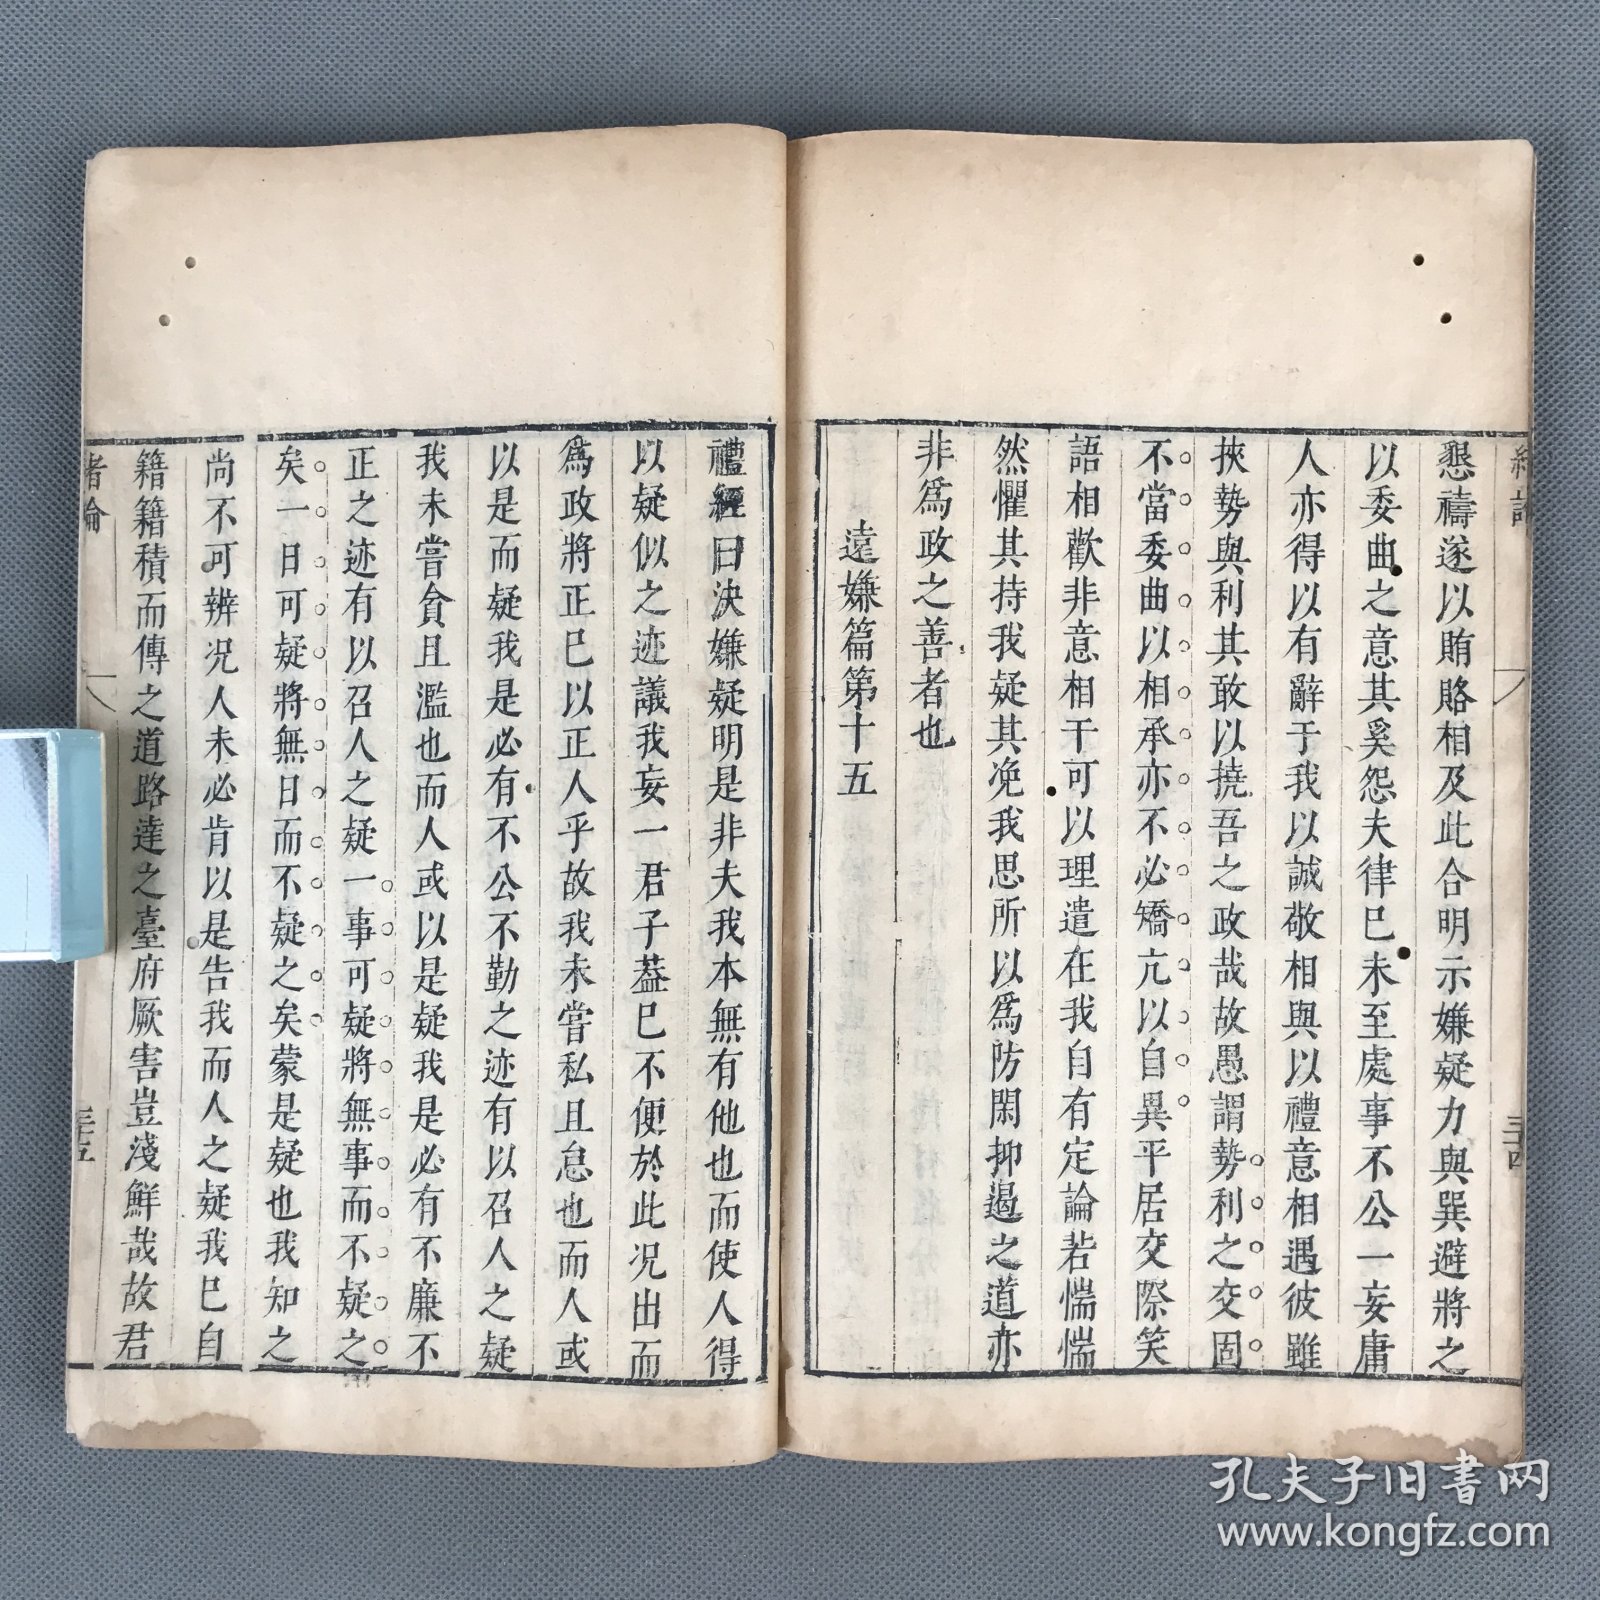 懇禱遂以賄賂相及此合明示嫌疑力與巽避將之
以委曲之意其奚怨夫律已未至處事不公一妄庸
人亦得以有辭于我以誠敬相與以禮意相遇彼雖
挾勢與利其敢以撓吾之政哉故愚謂勢利之交固
不當委曲以相承亦不必矯亢以自異平居交際笑
語相歡非意相干可以理遣在我自有定論若惴惴
然懼其持我疑其浼我思所以爲防閑抑遏之道亦
非爲政之善者也
遠嫌篇第十五
三十四
禮經曰決嫌疑明是非夫我本無有他也而使人得
以疑似之迹議我妄一君子葢已不便於此况出而
爲政將正已以正人乎故我未嘗私且怠也而人或
以是而疑我是必有不公不勤之迹有以召人之疑
我未嘗貪且濫也而人或以是疑我是必有不廉不
正之迹有以召人之疑一事可疑將無事而不疑之
矣一日可疑將無日而不疑之矣蒙是疑也我知之
尚不可辨况人未必肯以是告我而人之疑我已自
籍籍積而傳之道路達之臺府厥害豈淺鮮哉故君
緒論
三十五
孔夫子旧书网
www.kongfz.com